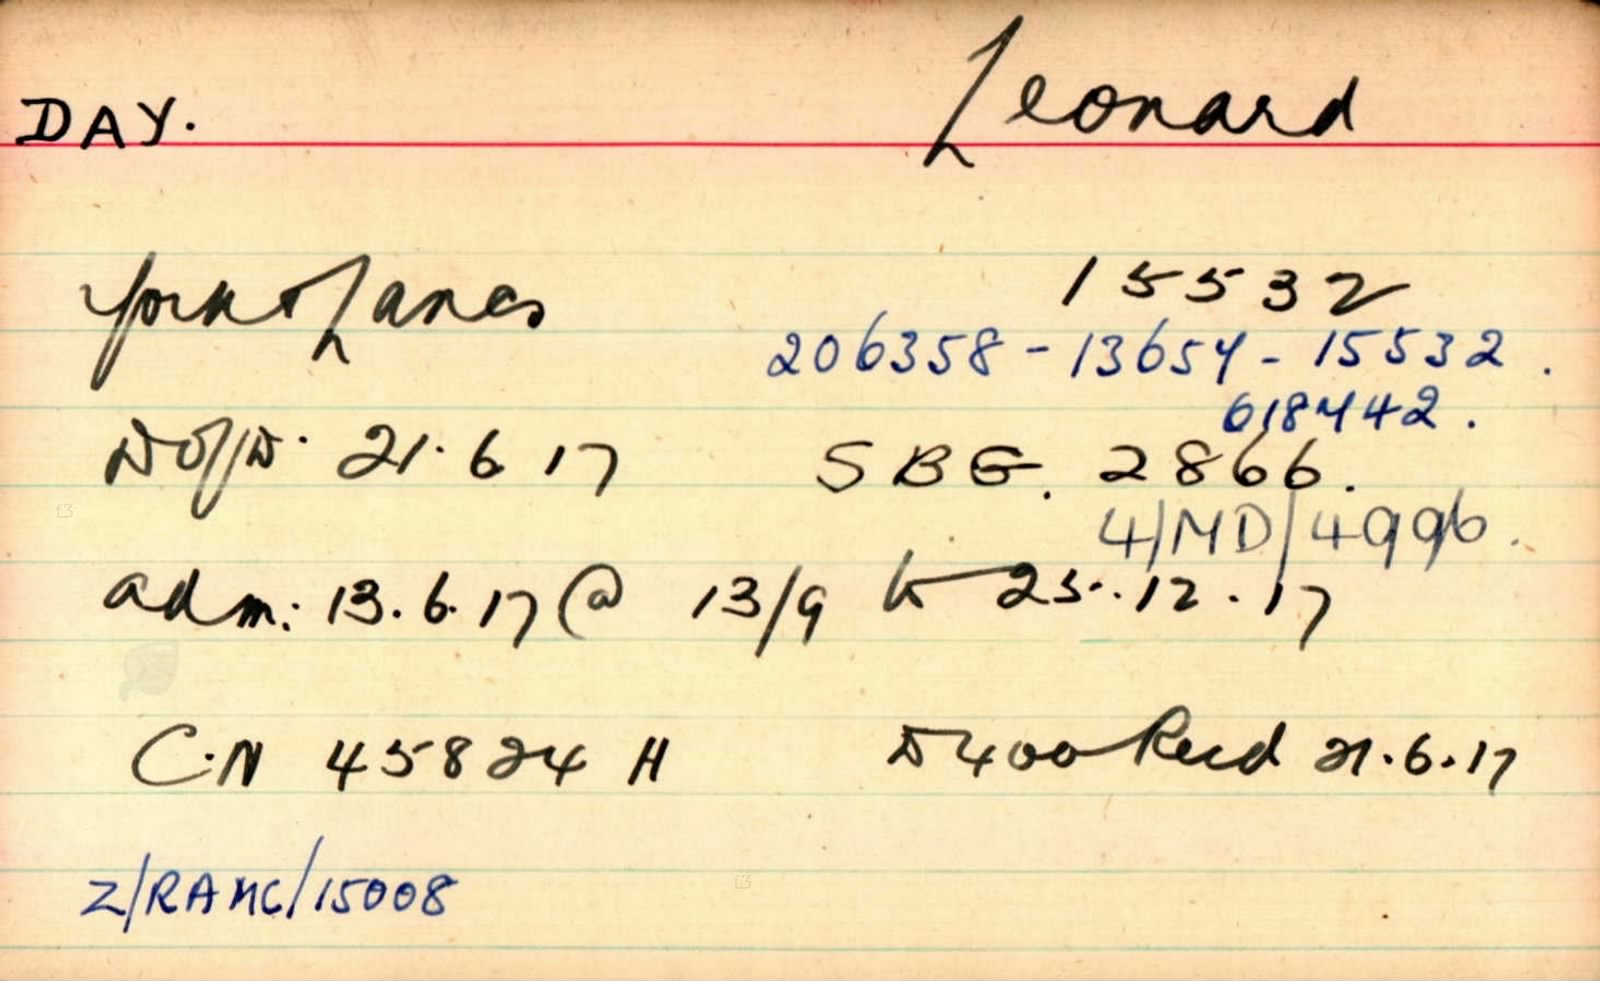 DAY. Leonard
York & Lancs 15532
206358 - 13654 - 15532.
618442.
D of D. 21.6 17 SBG. 2866.
4/MD/4996.
adm: 13.6.17 @ 13/9 to 25.12.17
C.N 45824 H D400 Recd 21.6.17
Z/RAMC/15008